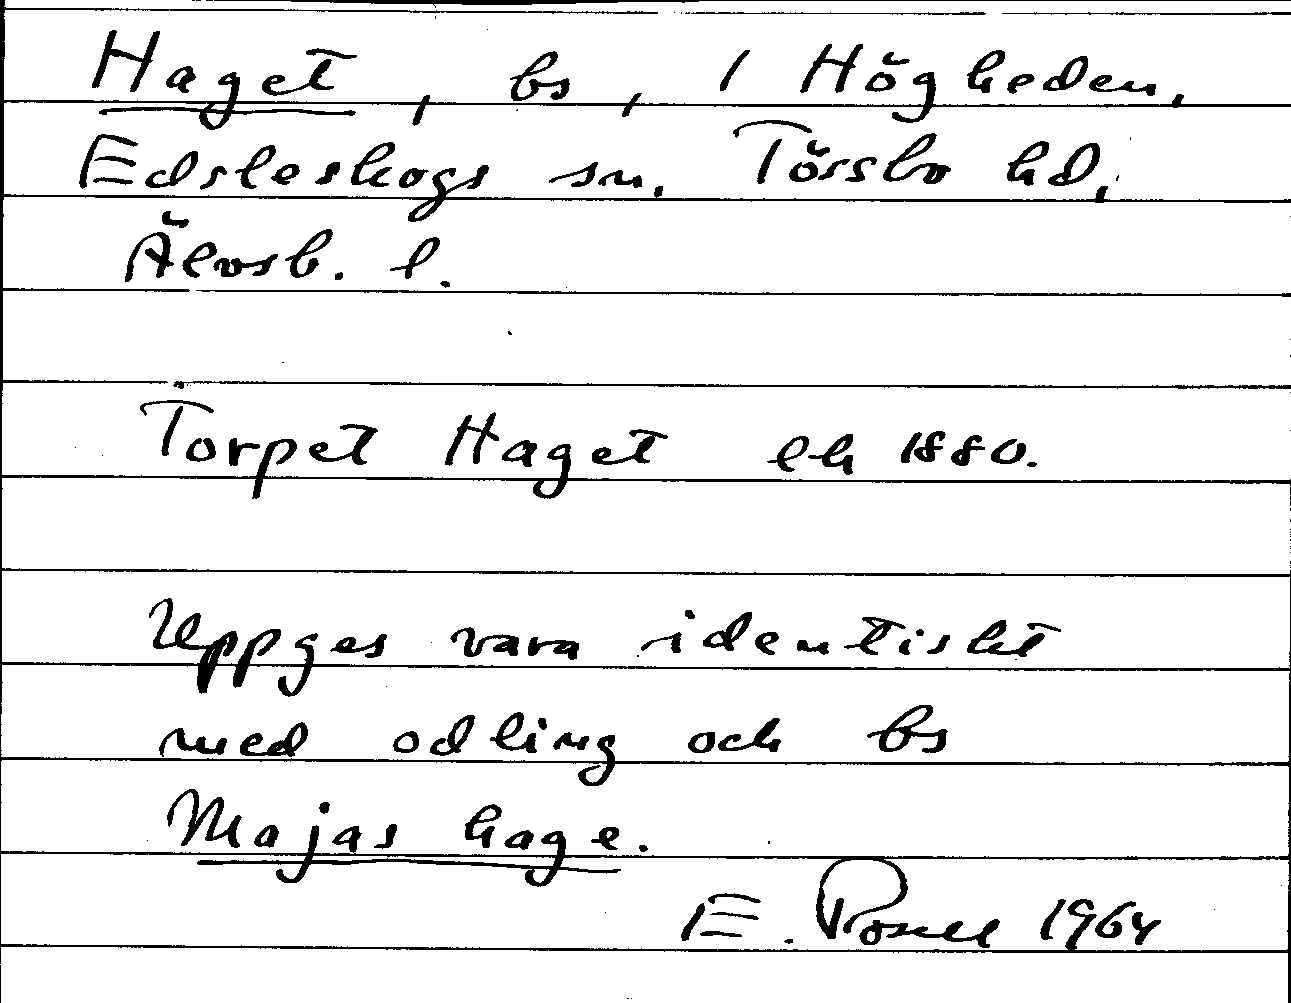 Haget, bs, 1 Högheden,
Edsleskogs sn. Tössbo hd,
Älvsb. l.
Torpet Haget ek 1880.
Uppges vara identiskt
med odling och bs
Majas hage.
E. 1964